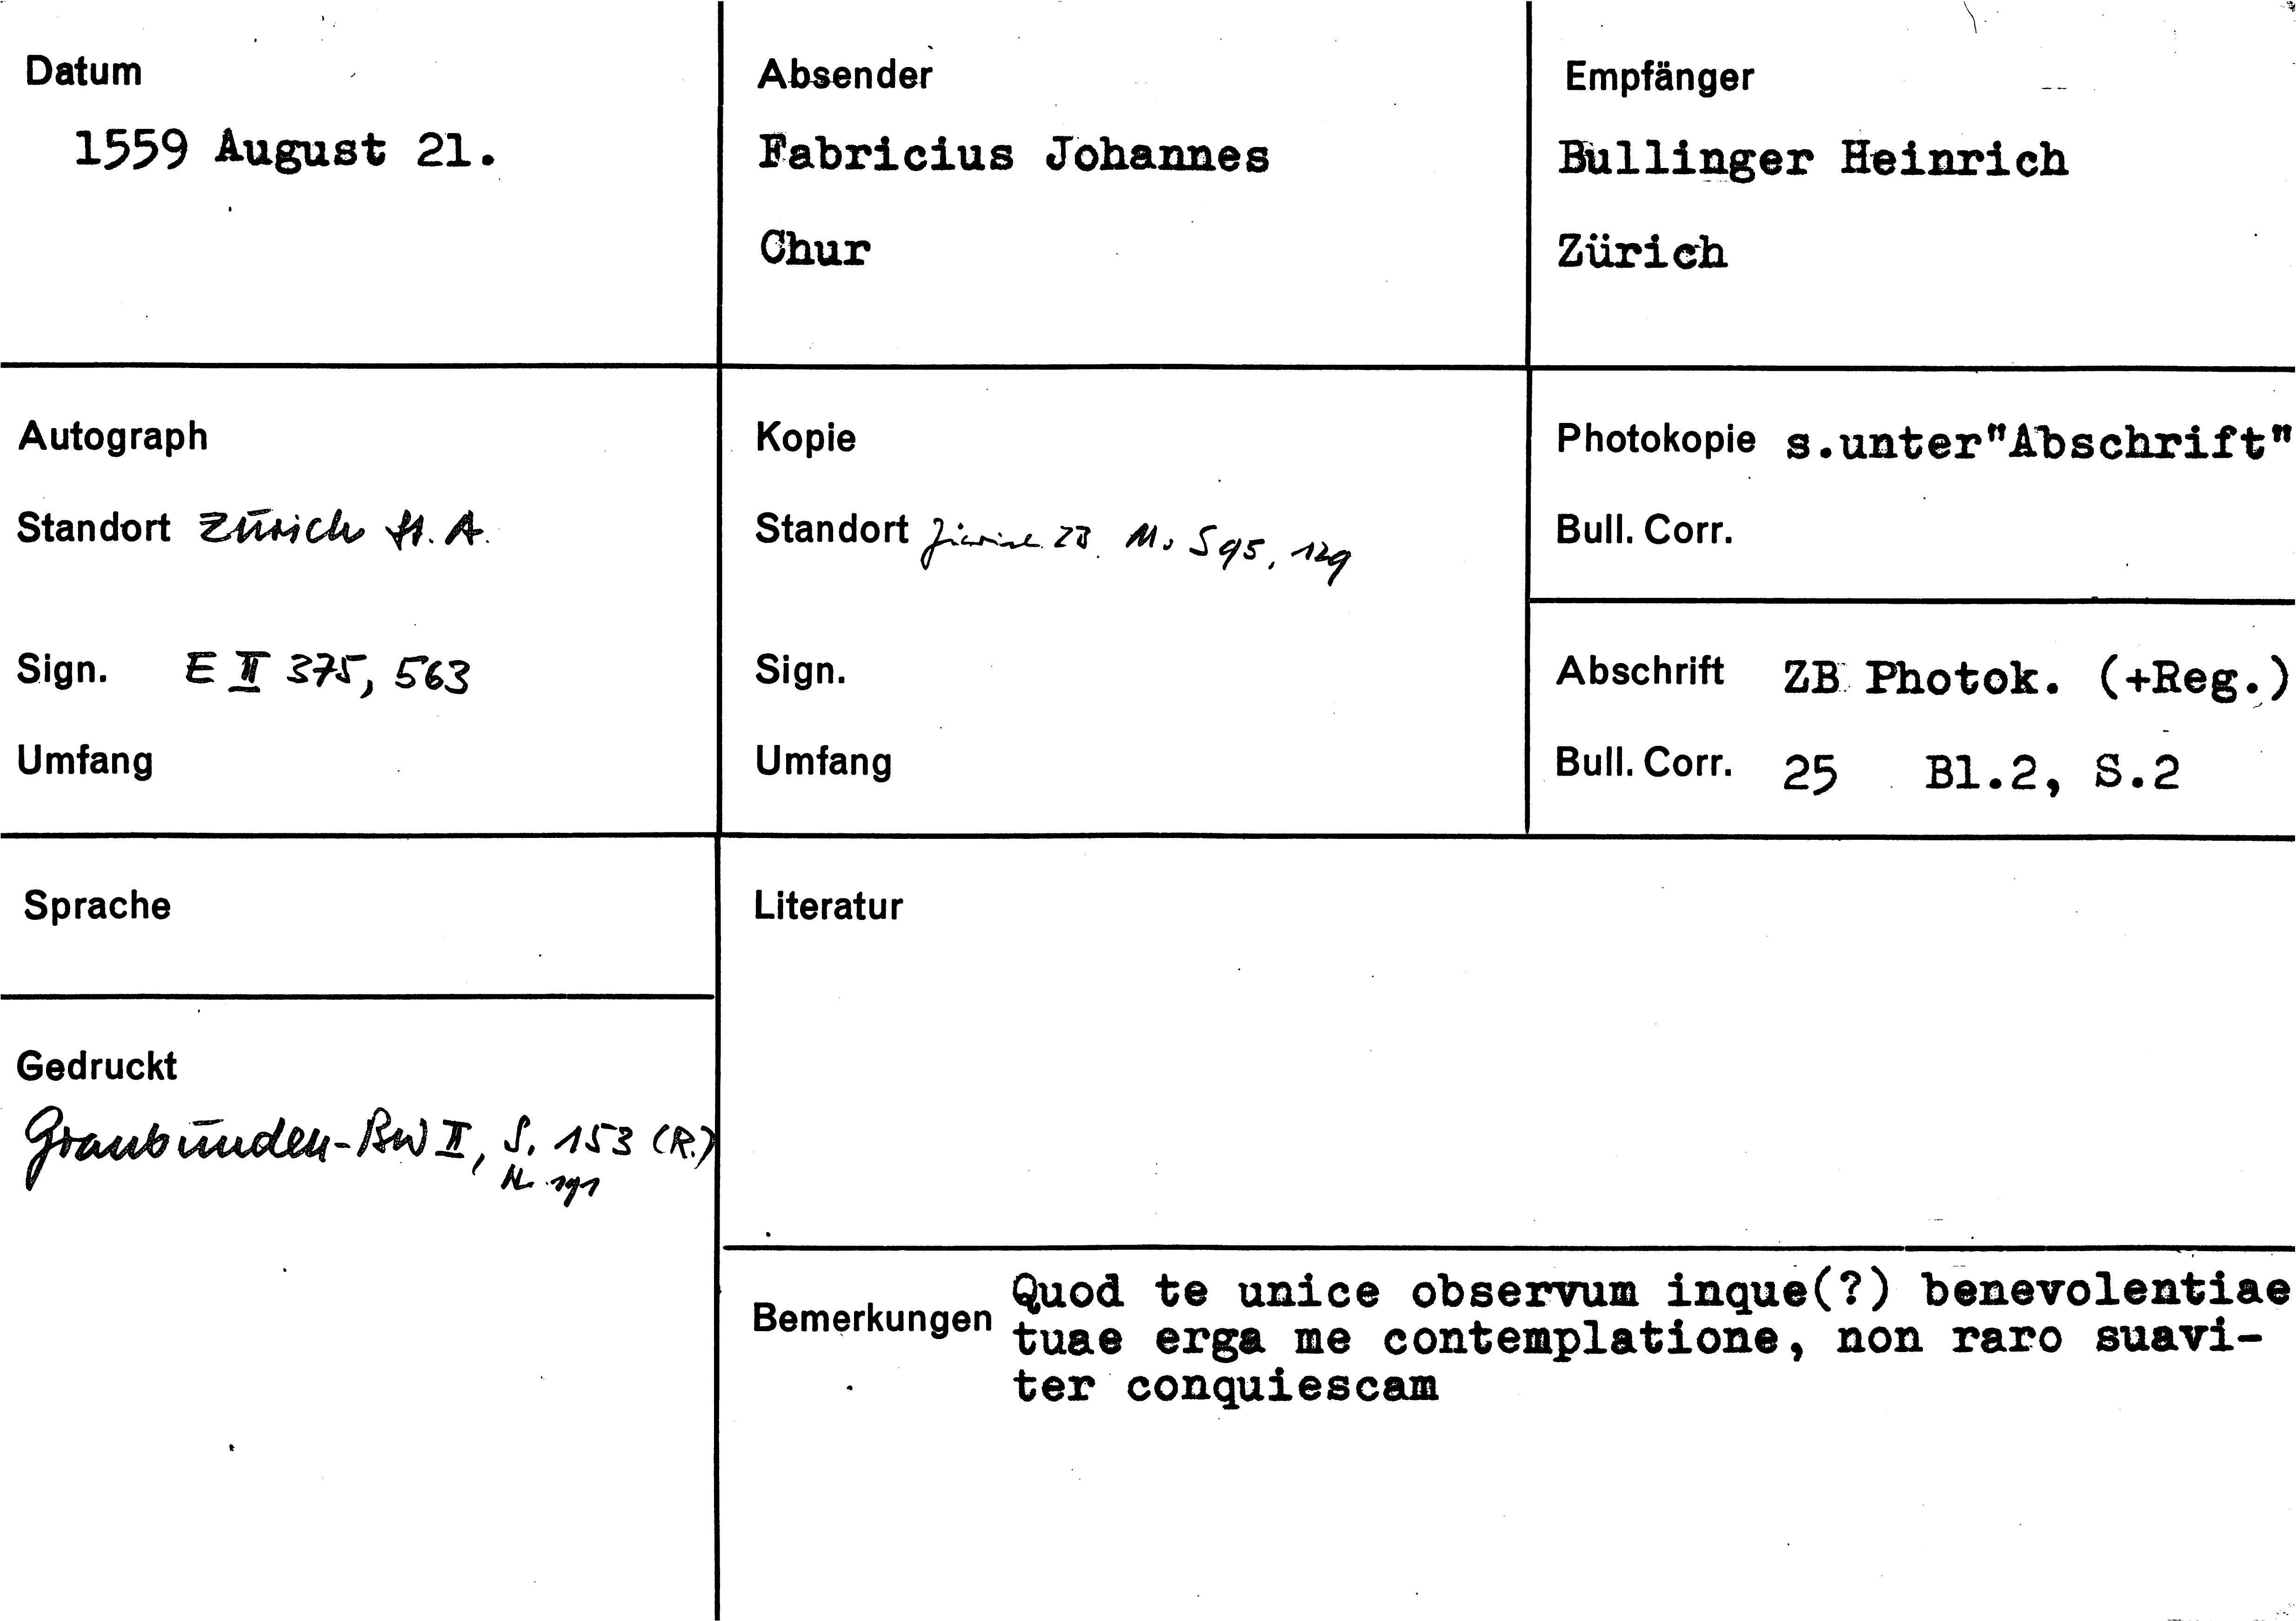 Datum
1559 August 21.
Absender
Fabricius Johannes
Chur
Empfänger
Bullinger Heinrich
Zürich
Autograph
Standort Zürich St. A.
Sign. E II 375, 563
Umfang
Kopie
Standort Zürich ZB. Ms S 95, 129
Sign.
Umfang
Photokopie s.unter"Abschrift"
Bull. Corr.
Abschrift ZB Photok. (+Reg.)
Bull. Corr. 25 Bl.2, S.2
Sprache
Gedruckt
Graubünden-BW II, S. 153 (R.)
Nr. 191
Literatur
Bemerkungen
Quod te unice observum inque(?) benevolentiae
tuae erga me contemplatione, non raro suavi-
ter conquiescam